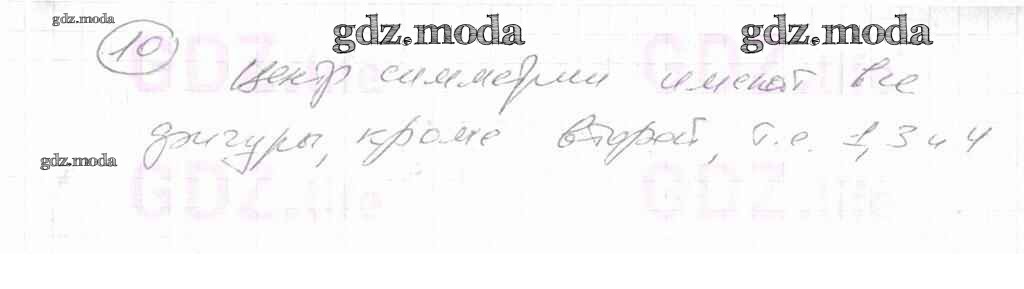 gdz.moda
10 gdz.moda gdz.moda
GDZ.life GDZ.life
Центр симметрии имеют все
фигуры, кроме второй, т.е. 1, 3 и 4
gdz.moda
GDZ.life GDZ.life